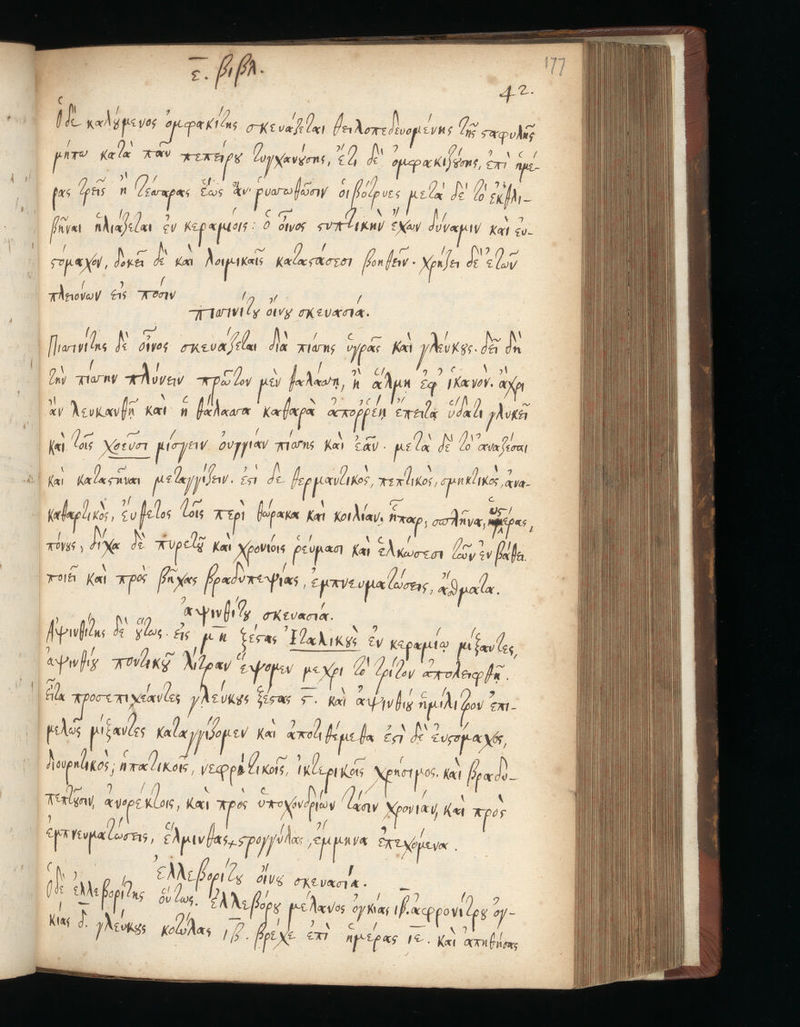 ε. βιβλ.
177
42.
Ὁ δὲ καλούμενος ὀμφακίτης σκευάζεται θειλοπεδευομένης τῆς σταφυλῆς
μήπω κατὰ πᾶν πεπείρου τυγχανούσης, ἔτι δὲ ὀμφρακιζούσης, ἐπὶ ἡμέ-
ρας τρεῖς ἢ τέσσαρας ἕως ἂν ῥυσσωθῶσιν οἱ βότρυες μετὰ δὲ τὸ ἐκθλι-
βῆναι ἡλιάζεται ἐν κεραμίοις: ὁ οἶνος στυπτικὴν ἔχων δύναμιν καὶ ευ-
στόμαχον, δοκεῖ δὲ καὶ λοιμικαῖς καταστάσεσι βοηθεῖν. χρήζει δὲ ἐτῶν
πλειόνων εἰς πόσιν
πισσινίτου οἴνου σκευασία.
Πισσινίτης δὲ οἶνος σκευάζεται διὰ πίσσης ὑγρᾶς καὶ γλεύκους. δεῖ δὴ
τὴν πίσσην πλύνειν πρῶτον μὲν θαλάσσῃ, ἢ ἅλμῃ ἐφ' ἱκανὸν. ἄχρι
ἂν λευκανθῇ καὶ ἡ θάλασσα καθαρὰ ἀπορρέῃ ἔπειτα ὕδατι γλυκεῖ
καὶ τοῖς χοεῦσι μίσγειν οὐγγίαν πίσσης καὶ ἐᾶν. μετὰ δὲ τὸ ἀναζέσαι
καὶ καταστῆναι μεταγγίζειν. ἐστὶ δὲ θερμαντικὸς, πεπτικὸς, σμηκτικὸς, ἀνα-
καθαρτικὸς, εὔθετος τοῖς περὶ θώρακα καὶ κοιλίαν, ἧπαρ, σπλῆνα, ὑστέρας,
πόνους, δίχα δὲ πυρετοῦ καὶ χρονίοις ῥεύμασι καὶ ἑλκώσεσι τῶν ἐν βάθει.
ποιεῖ καὶ πρὸς βῆχας βραδυπεψίας, ἐμπνευματώσεις, ἄσθματα.
ἀψινθίτου σκευασία.
Ἀψινθίτης δὲ οὕτως. εἰς μη ξέστας Ἰταλικοὺς ἐν κεραμίῳ μίξαντες,
ἀψινθίου ποντικοῦ λίτραν ἕψομεν μεχρι τὸ τρίτον ἀπολειφθῇ.
εἶτα προσεπιχέαντες γλεύκους ξέστας ϛ. καὶ ἀψινθίου ἡμίλιτρον ἐπι-
μελῶς μίξαντες καταγγίζομεν καὶ ἀποτιθέμεθα ἐστὶ δὲ εὐστόμαχος,
διουρητικὸς, ἡπατικοῖς, νεφριτικοῖς, ἰκτερικοῖς χρήσιμος. καὶ βραδυ-
πεπτοῦσιν, ἀνορέκτοις, καὶ πρὸς ὑποχονδρίων τάσιν χρονίαν, καὶ πρὸς
ἐμπνευματώσεις, ἕλμινθας στρογγύλας, ἔμμηνα ἐπεχόμενα.
ἐλλεβορίτου οἴνου σκευασία.
Ὁ δὲ ἐλλεβορίτης οὕτως. ἐλλεβόρου μέλανος ὀγκίας ιβ. ἀφρονίτρου ὀγ-
κίας δ. γλεύκους κοτύλας ιβ. βρέχε ἐπὶ ἡμέρας ιε. καὶ ἀπηθήσας